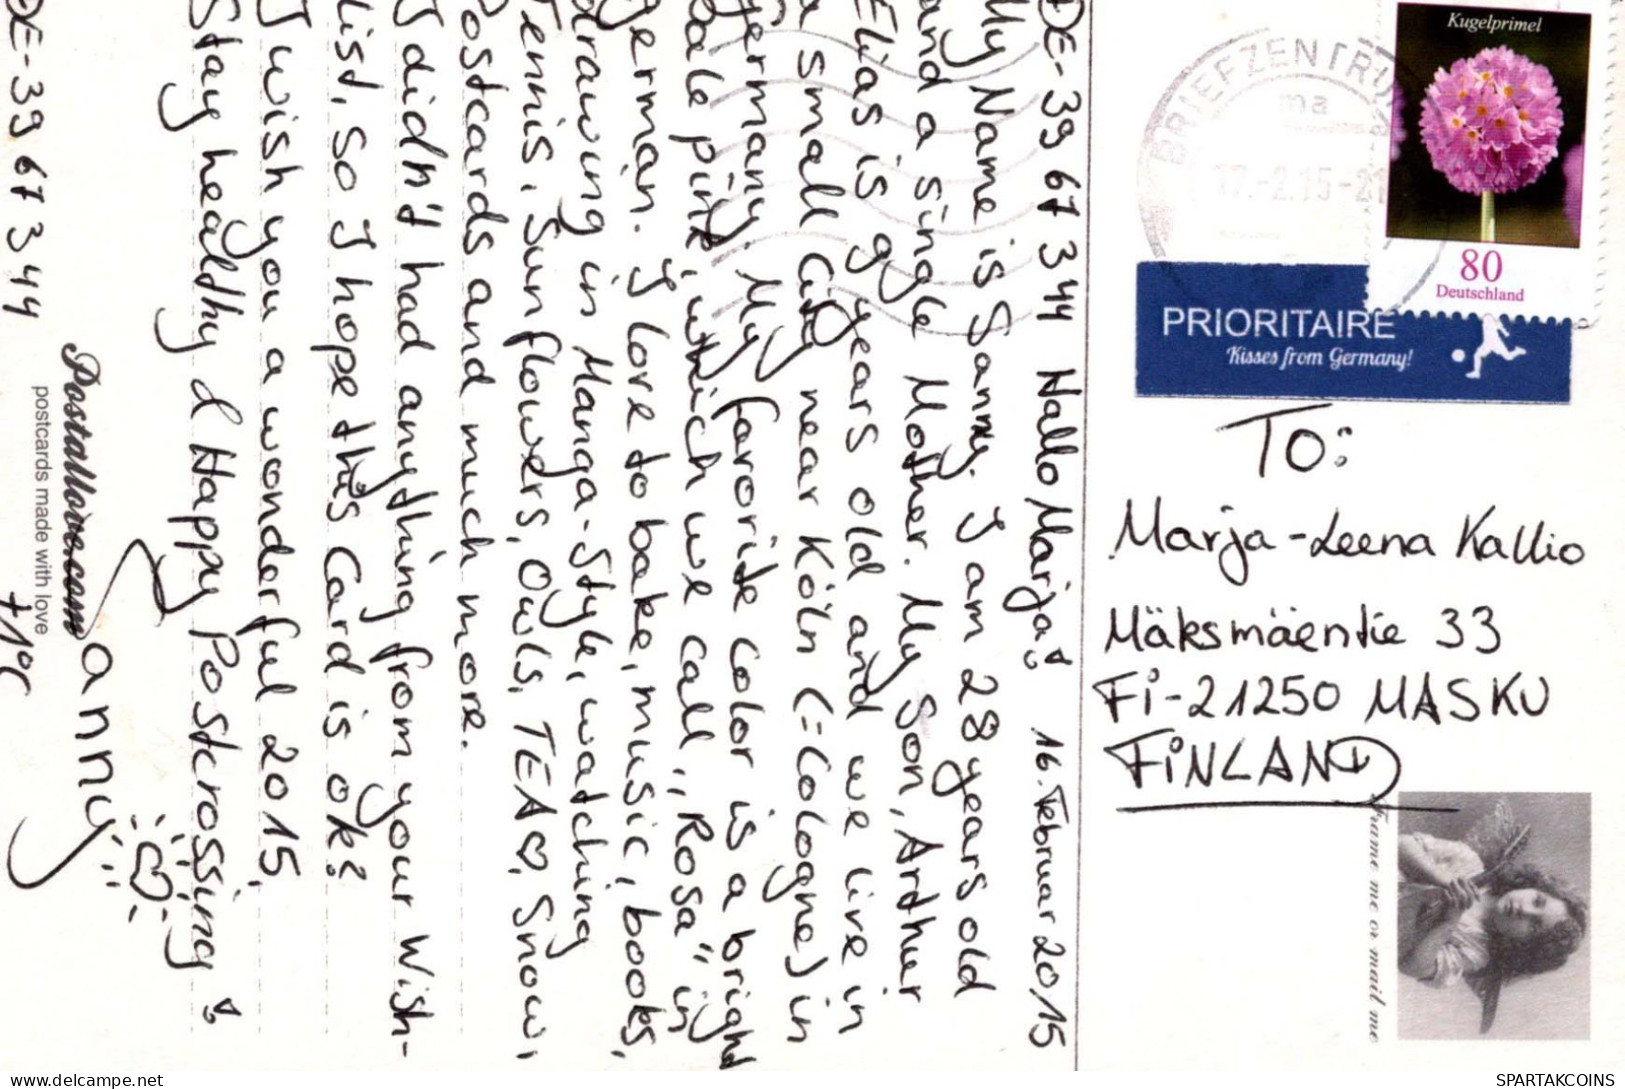 DE-3967344 Hallo Marja! 16. Februar 2015
My Name is Sanny. I am 28 years old
and a single Mother. My Son, Arthur
Elias is 9 years old and we live in
a small City near Köln (=Cologne) in
Germany. My favorite Color is a bright
pale pink, which we call „Rosa“ in
German. I love to bake, music, books,
drawing in Manga-Style, watching
Tennis, Sunflowers, Owls, TEA♡, Snow,
Postcards and much more.
I didn't had anything from your Wish-
list, so I hope this Card is ok?
I wish you a wonderful 2015,
Stay healthy & Happy Postcrossing!
Sanny
Postallove.com
postcards made with love
DE-3967344
+1°C
Kugelprimel
80
Deutschland
BRIEFZENTRU
ma
17.-2.15-21
PRIORITAIRE
Kisses from Germany!
TO:
Marja-Leena Kallio
Mäksmäentie 33
Fi-21250 MASKU
FiNLAND
Frame me or mail me
SPARTAKCOINS
www.delcampe.net